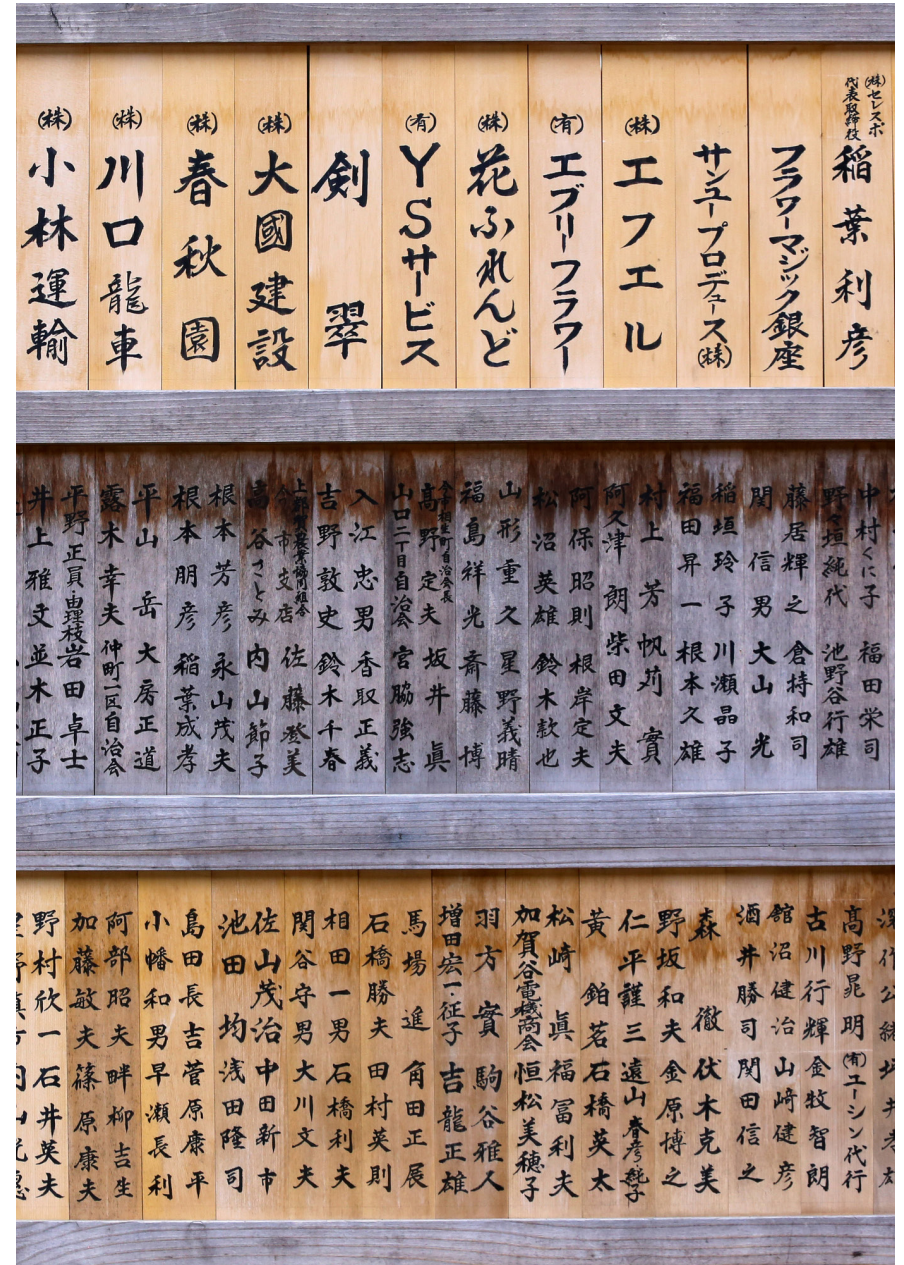 ㈱セレスポ
代表取締役
稲葉利彦
フラワーマジック銀座
サンユープロデュース㈱
㈱エフエル
㈲エブリーフラワー
㈱花ふれんど
㈲YSサービス
剣翠
㈱大國建設
㈱春秋園
㈱川口龍車
㈱小林運輸
中村くに子 福田栄司
野々垣純代 池野谷行雄
藤居輝之 倉持和司
関信男 大山光
稲垣玲子 川瀬晶子
福田昇一 根本久雄
村上芳帆 苅實
阿久津朗 柴田文夫
阿保昭則 根岸定夫
松沼英雄 鈴木款也
山形重久 星野義晴
福島祥光 斎藤博
今市相生町自治会長
髙野定夫 坂井眞
山口二丁目自治会 宮脇強志
入江忠男 香取正義
吉野敦史 鈴木千春
上都賀農業協同組合
今市支店 佐藤澄美
高谷さとみ 内山節子
根本芳彦 永山茂夫
根本朋彦 稲葉成孝
平山岳 大房正道
露木幸夫 仲町一区自治会
平野正員・由理枝 岩田卓士
井上雅文 並木正子
髙野晃明 ㈲エーシン代行
古川行輝 金牧智朗
舘沼健治 山﨑健彦
酒井勝司 関田信之
森徹 伏木克美
野坂和夫 金原博之
仁平謹三 遠山春彦・純子
黄鉑茗 石橋英太
松崎眞 福冨利夫
加賀谷電機商会 恒松美穂子
羽方實 駒谷雅人
増田宏一・征子 吉龍正雄
馬場進 角田正展
石橋勝夫 田村英則
相田一男 石橋利夫
関谷守男 大川文夫
佐山茂治 中田新市
池田均 浅田隆司
島田長吉 菅原康平
小幡和男 早瀬長利
阿部昭夫 畔柳吉生
加藤敏夫 篠原康夫
野村欣一 石井英夫